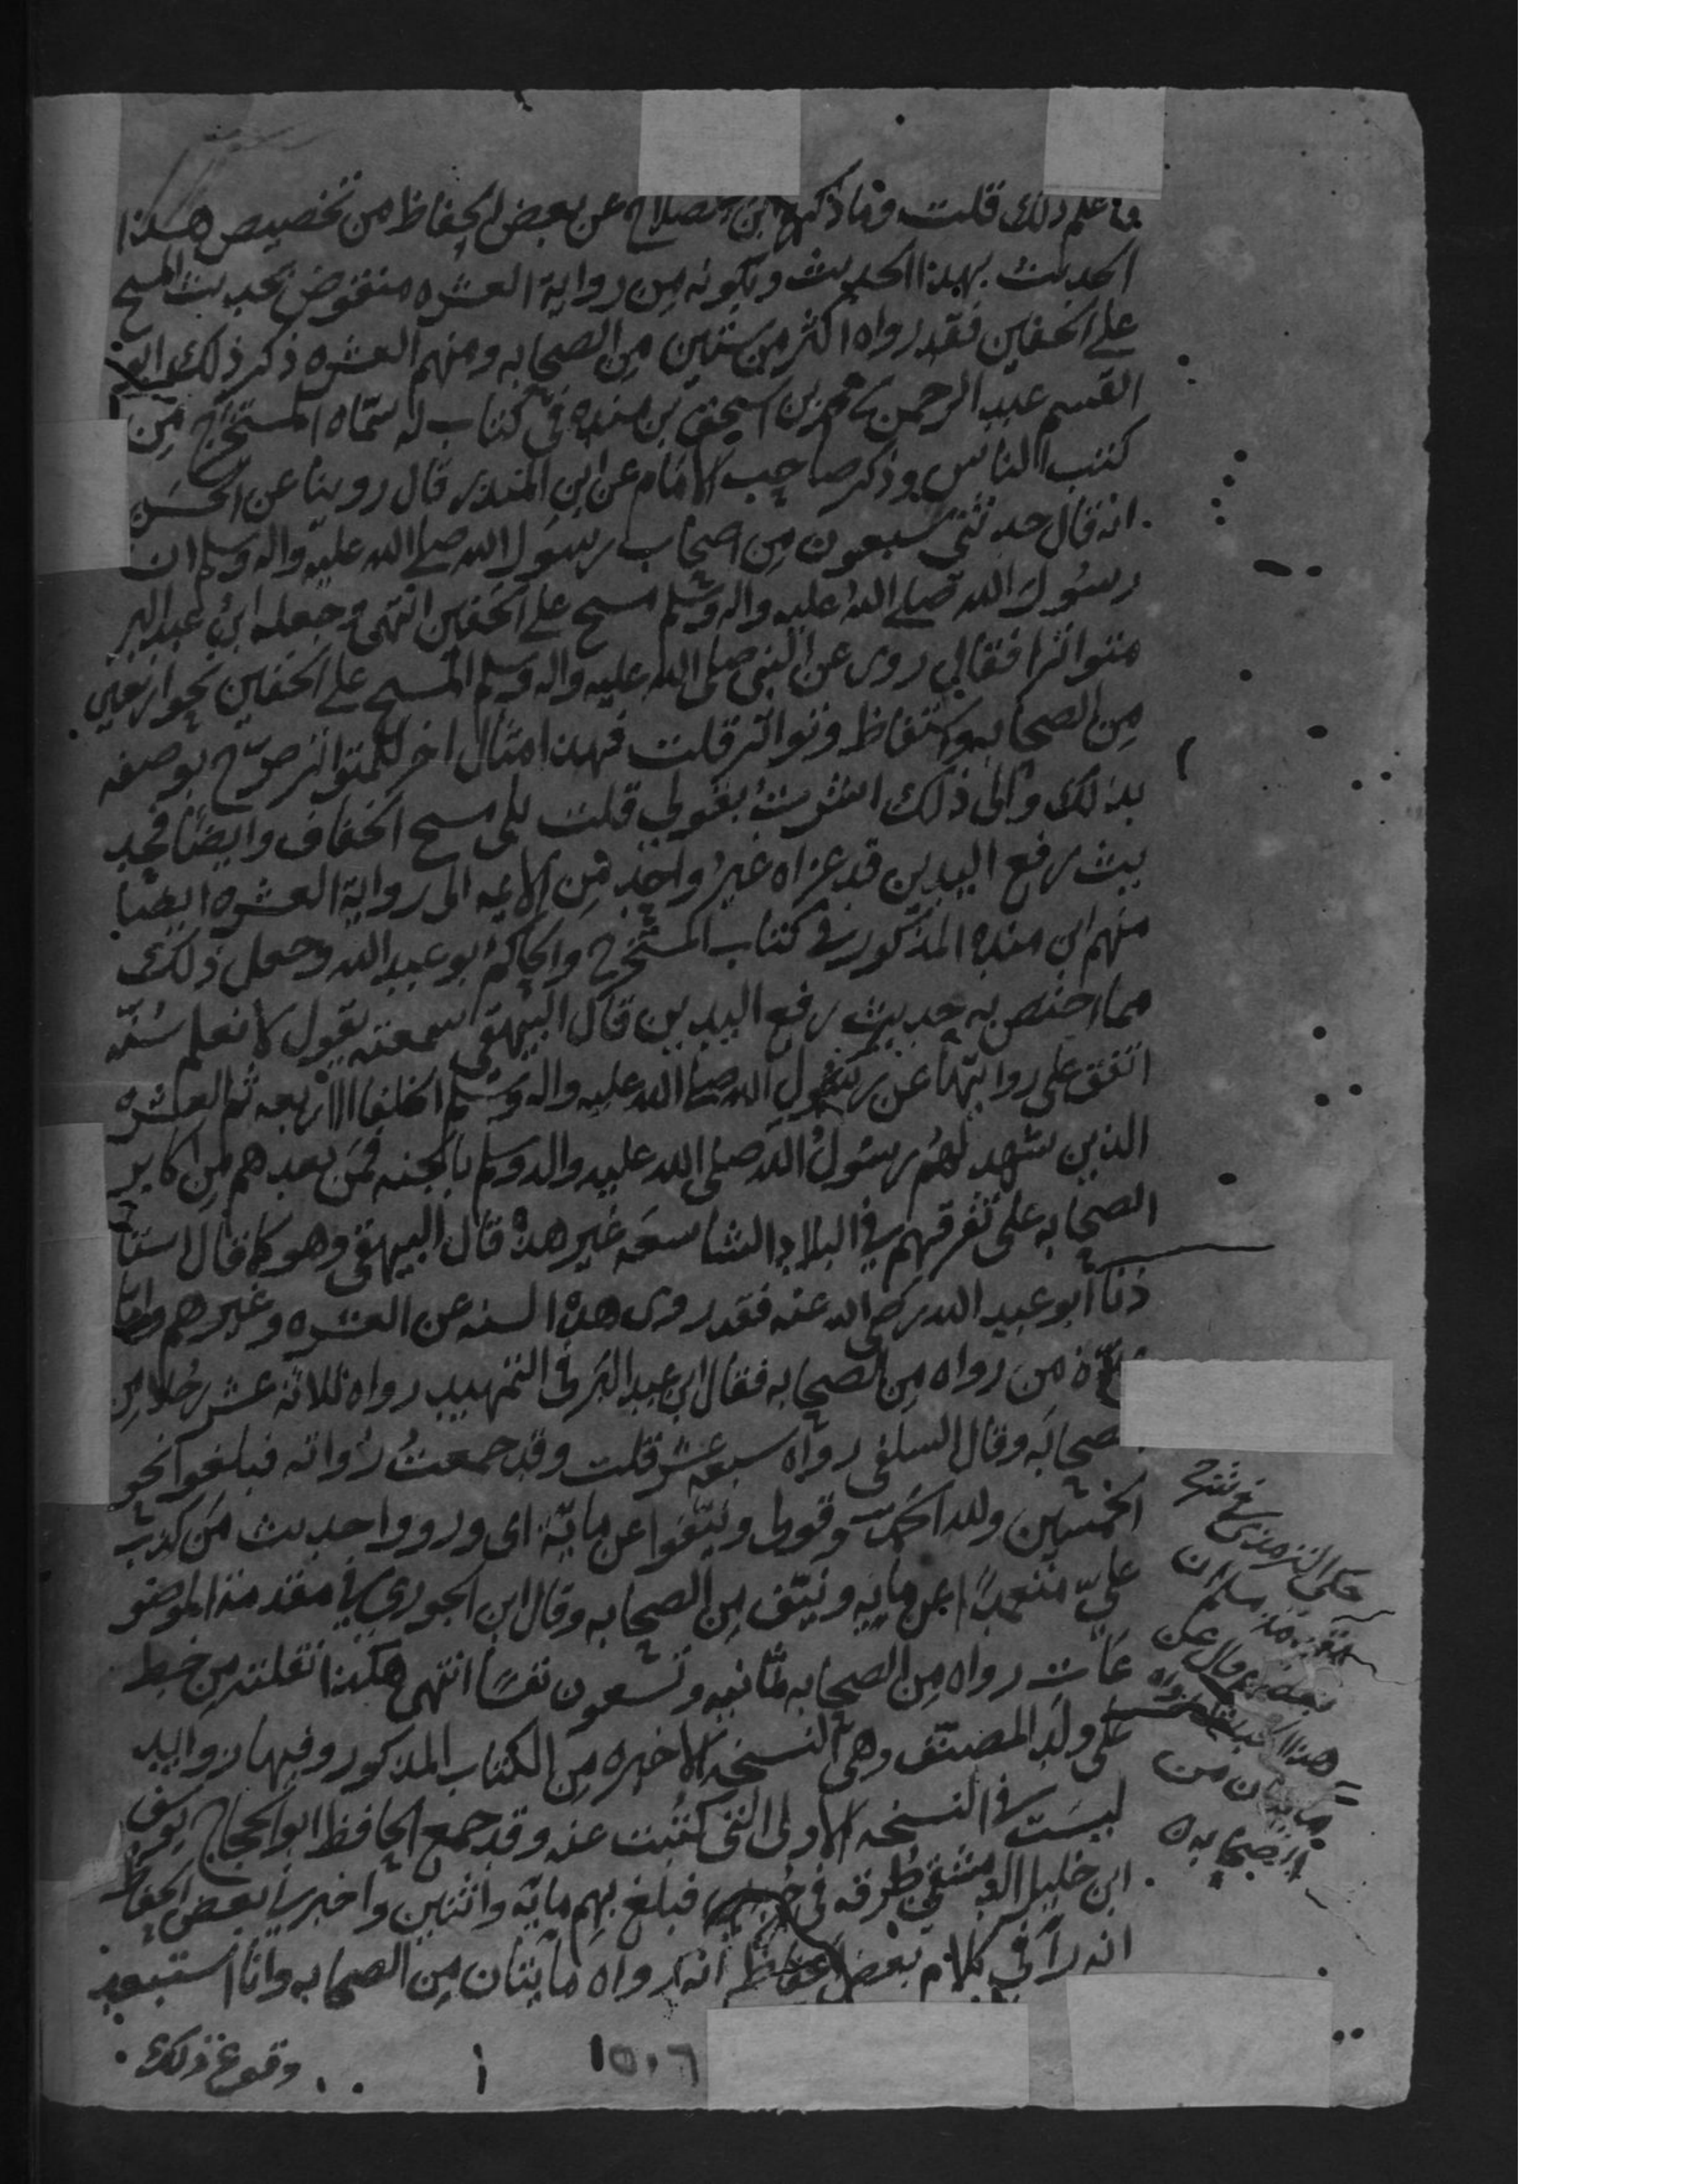 فاعلم ذلك قلت وما ذكره ابن الصلاح عن بعض الحفاظ من تخصيص هذا
الحديث بهذا الحديث وبكونه من رواية العشره منقوض بحديث المسح
على الخفين فقد رواه اكثر من ستين من الصحابه ومنهم العشره ذكر ذلك ابو
القسم عبد الرحمن بن محمد بن اسحق بن منده في كتاب له سماه المستخرج من
كتب الناس وذكر صاحب الامام عن ابن المنذر قال روينا عن الحسن
انه قال حدثني سبعون من اصحاب رسول الله صلى الله عليه واله وسلم ان
رسول الله صلى الله عليه واله وسلم مسح على الخفين انتهى وجعله ابن عبد البر
متواترا فقال روى عن النبي صلى الله عليه واله وسلم المسح على الخفين نحو اربعين
من الصحابه واستفاظ وتواتر قلت فهذا مثال اخر للمتواتر صرح بوصفه
بذلك والى ذلك اشرت بقولي قلت بلى مسح الخفاف وايضا فحد
يث رفع اليدين قد عزاه غير واحد من الائمه الى رواية العشره ايضا
منهم ابن منده المذكور في كتاب المستخرج والحاكم ابو عبد الله وجعل ذلك
مما اختص به حديث رفع اليدين قال البيهقي سمعته يقول لا نعلم سنه
اتفق على روايتها عن رسول الله صلى الله عليه واله وسلم الخلفا الاربعه ثم العشره
الذين شهد لهم رسول الله صلى الله عليه واله وسلم بالجنه فمن بعدهم من اكابر
الصحابه على تفرقهم في البلاد الشاسعه غير هذه قال البيهقي وهو كما قال استا
ذنا ابو عبد الله رضي الله عنه فقد روى هذه السنه عن العشره وغيرهم واما
عدة من رواه من الصحابه فقال ابن عبد البر في التمهيد رواه ثلاثه عشر رجلا من
الصحابه وقال السلفي رواه سبعه عشر قلت وقد جمعت رواته فبلغوا نحو
الخمسين ولله الحمد وقولي ونيفوا عن مائة اي ورووا حديث من كذب
علي متعمدا عن مايه ونيف من الصحابه وقال ابن الجوزي في مقدمة الموضو
عات رواه من الصحابه ثمانيه وتسعون نفسا انتهى هكذا نقلته من خط
علي ولد المصنف وهي النسخه الاخيره من الكتاب المذكور وفيها زوايد
ليست في النسخه الاولى التي كتبت عنه وقد جمع الحافظ ابو الحجاج يوسف
ابن خليل الدمشقي طرقه في فبلغ بهم ماية واثنين واخبرني بعض الحفاظ
انه رآ في كلام بعض الحفاظ انه رواه مايتان من الصحابه وانا استبعد
وقوع ذلك
١٥٠٦
حكى الترمذي في شرح
مقدمة مسلم ان
بعضهم قال عن
هذا الحديث رواه
مايتان من
الصحابه